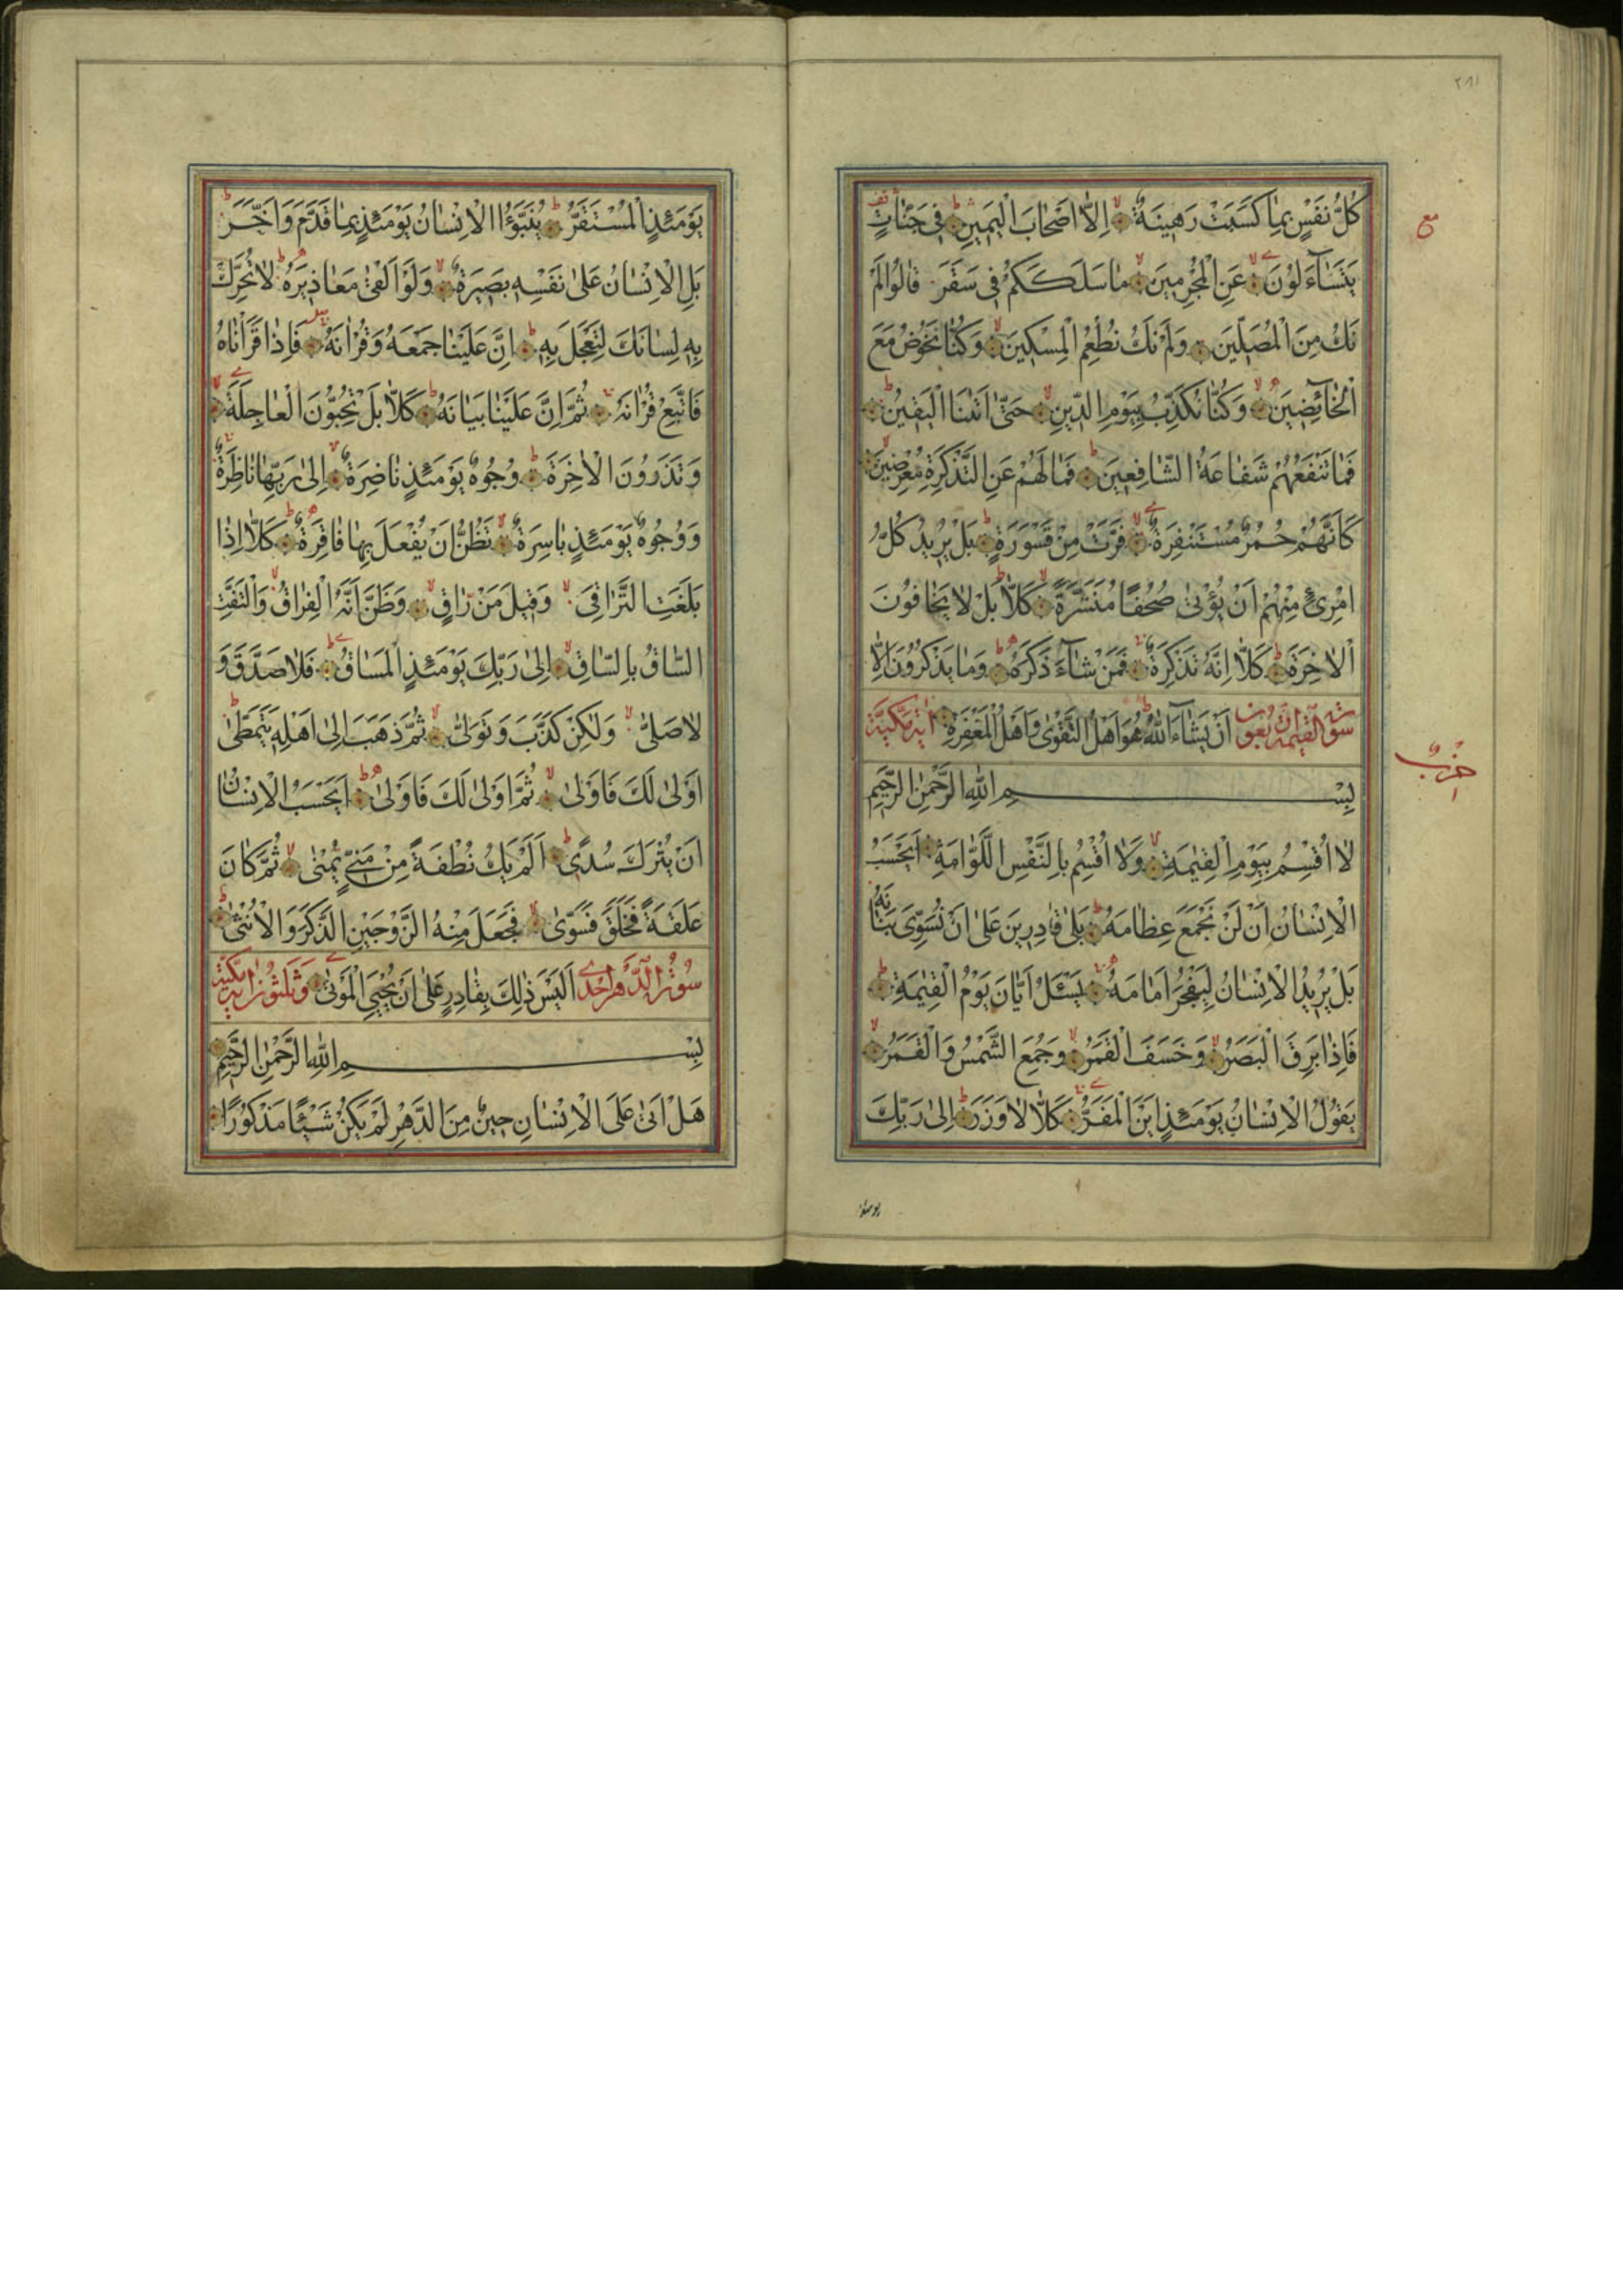 ٢٨١
كُلُّ نَفْسٍ بِمٰا كَسَبَتْ رَهٖينَةٌ اِلاّٰ اَصْحٰابَ الْيَمٖينِ فٖى جَنّٰاتٍ
مع
يَتَسٰٓاءَلُونَ عَنِ الْمُجْرِمٖينَ مٰا سَلَكَكُمْ فٖى سَقَرَ قٰالُوا لَمْ
نَكُ مِنَ الْمُصَلّٖينَ وَلَمْ نَكُ نُطْعِمُ الْمِسْكٖينَ وَكُنّٰا نَخُوضُ مَعَ
الْخٰٓائِضٖينَ وَكُنّٰا نُكَذِّبُ بِيَوْمِ الدّٖينِ حَتّٰى اَتٰينَا الْيَقٖينُ
فَمٰا تَنْفَعُهُمْ شَفٰاعَةُ الشّٰافِعٖينَ فَمٰا لَهُمْ عَنِ التَّذْكِرَةِ مُعْرِضٖينَ
كَاَنَّهُمْ حُمُرٌ مُسْتَنْفِرَةٌ فَرَّتْ مِنْ قَسْوَرَةٍ بَلْ يُرٖيدُ كُلُّ
امْرِئٍ مِنْهُمْ اَنْ يُؤْتٰى صُحُفًا مُنَشَّرَةً كَلاّٰ بَلْ لا يَخٰافُونَ
الْاٰخِرَةَ كَلاّٰ اِنَّهُ تَذْكِرَةٌ فَمَنْ شٰٓاءَ ذَكَرَهُ وَمٰا يَذْكُرُونَ اِلاّٰ
سورة القيمة اربعون اَنْ يَشٰٓاءَ اللّٰهُ هُوَ اَهْلُ التَّقْوٰى وَاَهْلُ الْمَغْفِرَةِ اية مكية
حزب
بِسْمِ اللّٰهِ الرَّحْمٰنِ الرَّحٖيمِ
لٰا اُقْسِمُ بِيَوْمِ الْقِيٰمَةِ وَلٰا اُقْسِمُ بِالنَّفْسِ اللَّوّٰامَةِ اَيَحْسَبُ
الْاِنْسٰانُ اَنْ لَنْ نَجْمَعَ عِظٰامَهُ بَلٰى قٰادِرٖينَ عَلٰى اَنْ نُسَوِّىَ بَنٰانَهُ
بَلْ يُرٖيدُ الْاِنْسٰانُ لِيَفْجُرَ اَمٰامَهُ يَسْئَلُ اَيّٰانَ يَوْمُ الْقِيٰمَةِ
فَاِذٰا بَرِقَ الْبَصَرُ وَخَسَفَ الْقَمَرُ وَجُمِعَ الشَّمْسُ وَالْقَمَرُ
يَقُولُ الْاِنْسٰانُ يَوْمَئِذٍ اَيْنَ الْمَفَرُّ كَلاّٰ لٰا وَزَرَ اِلٰى رَبِّكَ
يومئذ
يَوْمَئِذٍ الْمُسْتَقَرُّ يُنَبَّؤُا الْاِنْسٰانُ يَوْمَئِذٍ بِمٰا قَدَّمَ وَاَخَّرَ
بَلِ الْاِنْسٰانُ عَلٰى نَفْسِهٖ بَصٖيرَةٌ وَلَوْ اَلْقٰى مَعٰاذٖيرَهُ لٰا تُحَرِّكْ
بِهٖ لِسٰانَكَ لِتَعْجَلَ بِهٖ اِنَّ عَلَيْنٰا جَمْعَهُ وَقُرْاٰنَهُ فَاِذٰا قَرَاْنٰاهُ
فَاتَّبِعْ قُرْاٰنَهُ ثُمَّ اِنَّ عَلَيْنٰا بَيٰانَهُ كَلاّٰ بَلْ تُحِبُّونَ الْعٰاجِلَةَ
وَتَذَرُونَ الْاٰخِرَةَ وُجُوهٌ يَوْمَئِذٍ نٰاضِرَةٌ اِلٰى رَبِّهٰا نٰاظِرَةٌ
وَوُجُوهٌ يَوْمَئِذٍ بٰاسِرَةٌ تَظُنُّ اَنْ يُفْعَلَ بِهٰا فٰاقِرَةٌ كَلاّٰ اِذٰا
بَلَغَتِ التَّرٰاقِىَ وَقٖيلَ مَنْ رٰاقٍ وَظَنَّ اَنَّهُ الْفِرٰاقُ وَالْتَفَّتِ
السّٰاقُ بِالسّٰاقِ اِلٰى رَبِّكَ يَوْمَئِذٍ الْمَسٰاقُ فَلٰا صَدَّقَ وَ
لٰا صَلّٰى وَلٰكِنْ كَذَّبَ وَتَوَلّٰى ثُمَّ ذَهَبَ اِلٰى اَهْلِهٖ يَتَمَطّٰى
اَوْلٰى لَكَ فَاَوْلٰى ثُمَّ اَوْلٰى لَكَ فَاَوْلٰى اَيَحْسَبُ الْاِنْسٰانُ
اَنْ يُتْرَكَ سُدًى اَلَمْ يَكُ نُطْفَةً مِنْ مَنِىٍّ يُمْنٰى ثُمَّ كٰانَ
عَلَقَةً فَخَلَقَ فَسَوّٰى فَجَعَلَ مِنْهُ الزَّوْجَيْنِ الذَّكَرَ وَالْاُنْثٰى
سورة الدهر احدى اَلَيْسَ ذٰلِكَ بِقٰادِرٍ عَلٰى اَنْ يُحْيِىَ الْمَوْتٰى وثلثون اية مكية
بِسْمِ اللّٰهِ الرَّحْمٰنِ الرَّحٖيمِ
هَلْ اَتٰى عَلَى الْاِنْسٰانِ حٖينٌ مِنَ الدَّهْرِ لَمْ يَكُنْ شَيْئًا مَذْكُورًا